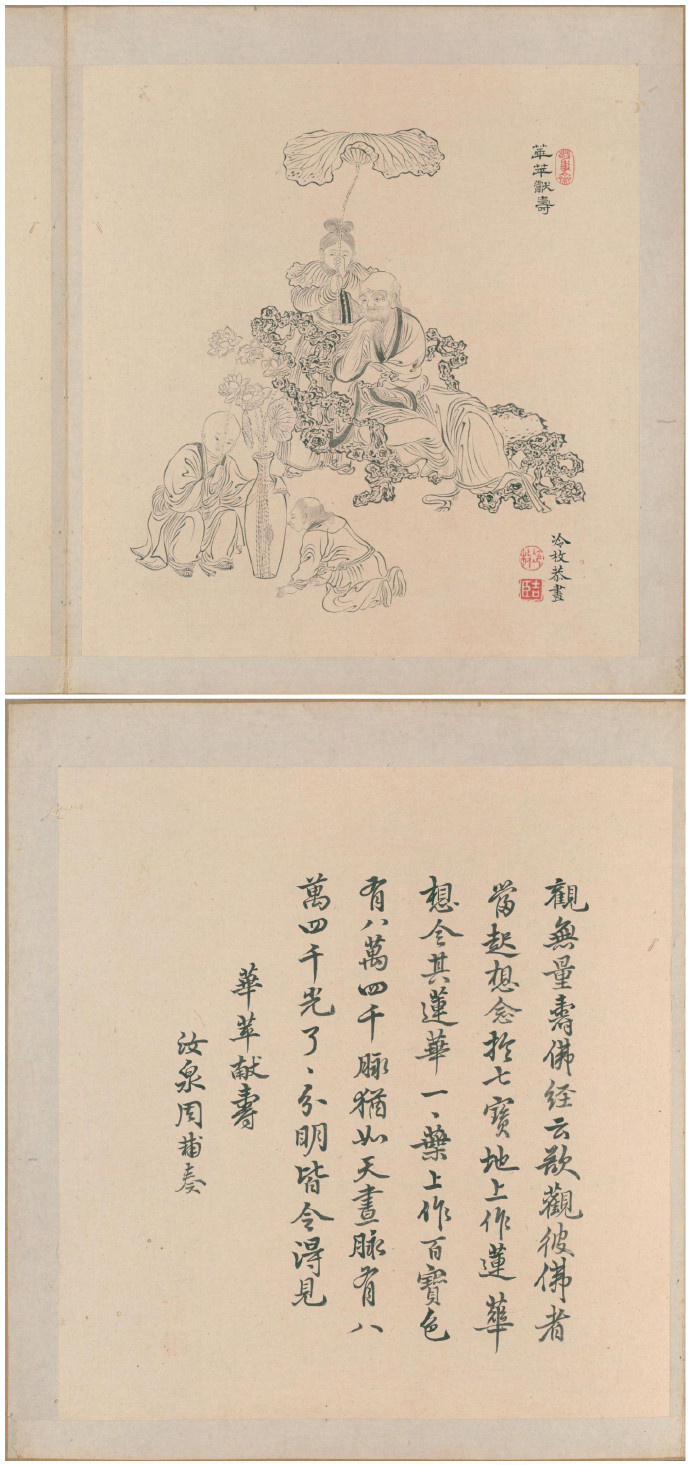 華苹獻壽
冷枚恭畫
觀無量壽佛經云欲觀彼佛者
當起想念於七寶地上作蓮華
想令其蓮華一、葉上作百寶色
有八萬四千脉猶如天畫脉有八
萬四千光了、分明皆令得見
華苹献壽
汝泉周補奏